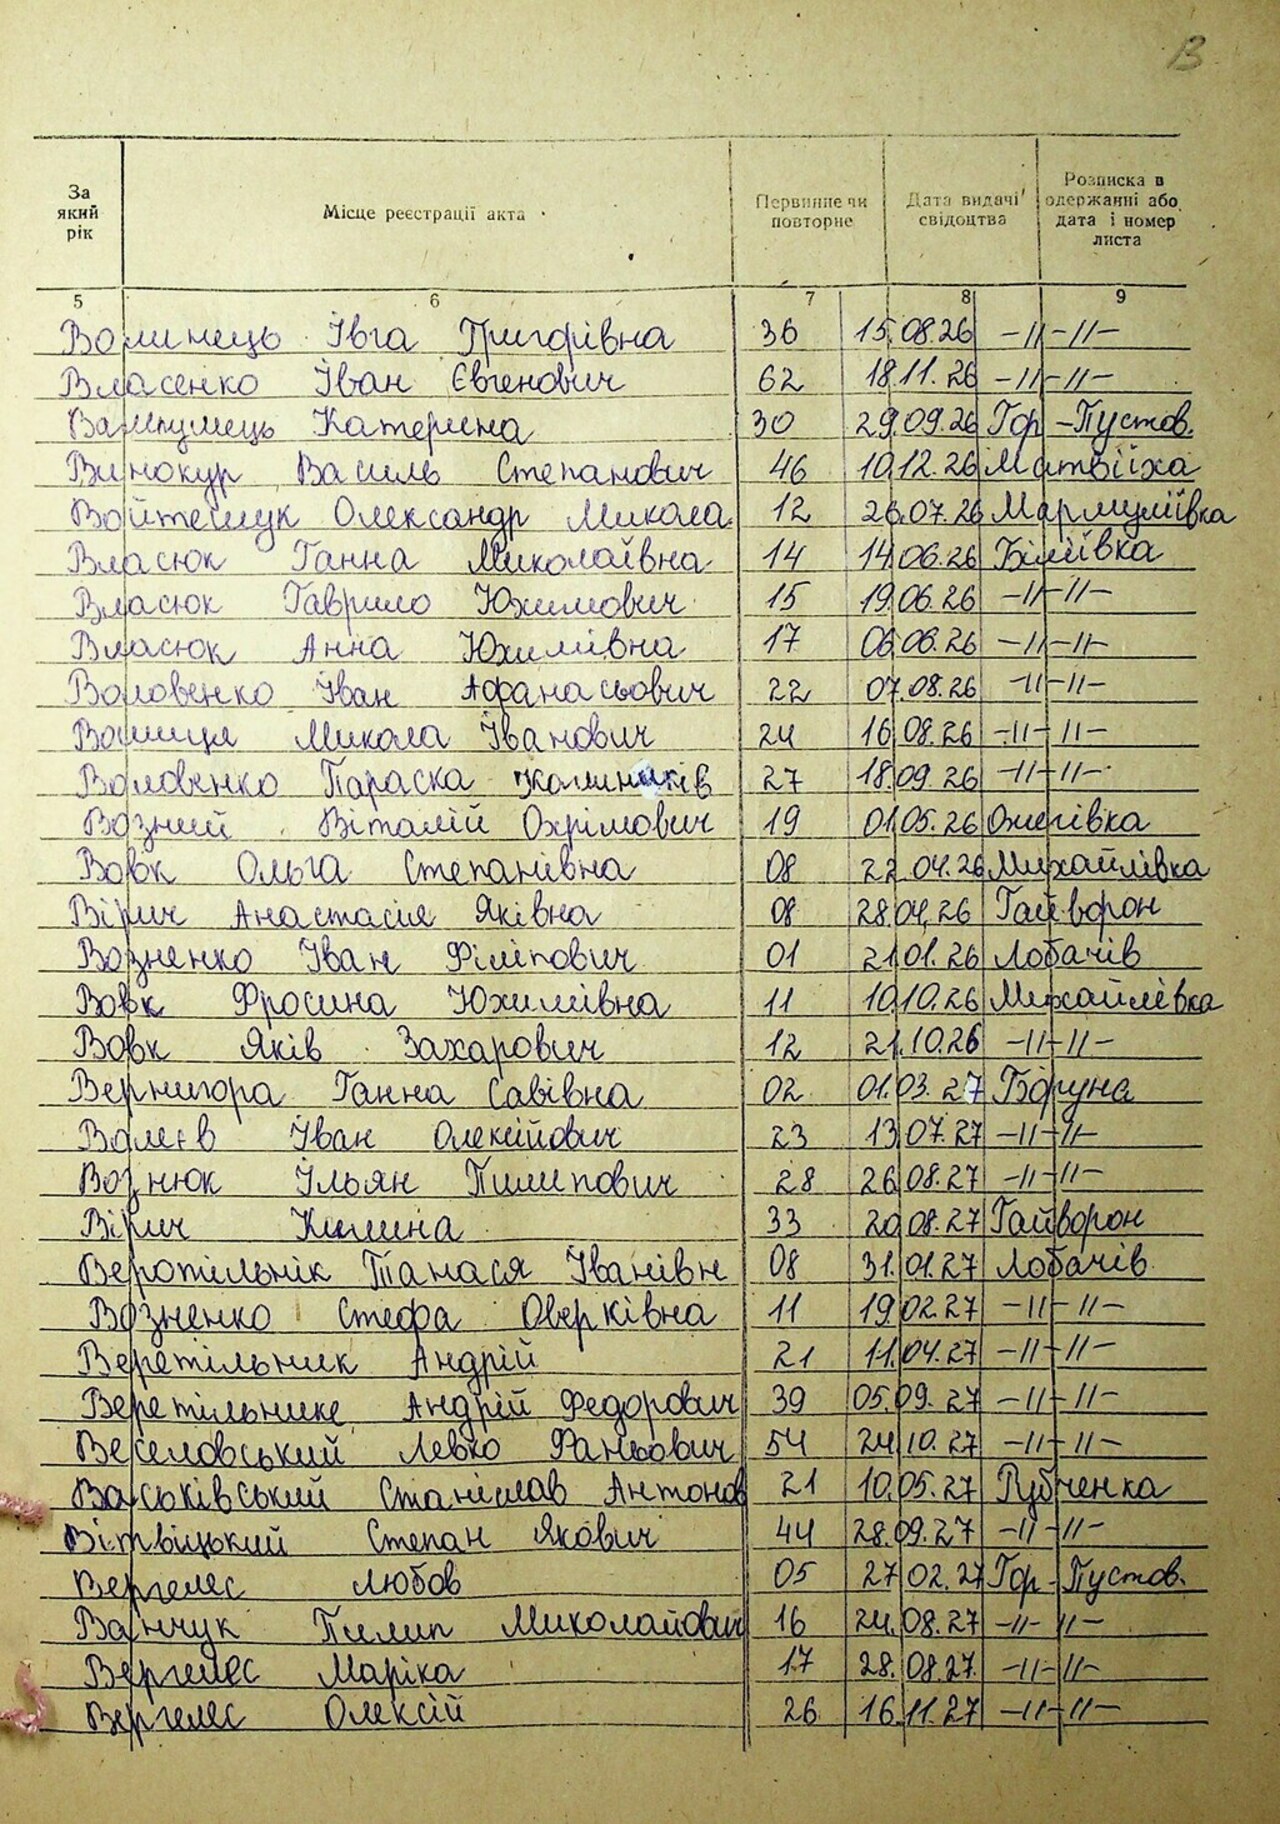 В
За який рік Місце реєстрації акта Первинне чи повторне Дата видачі свідоцтва Розписка в одержанні або дата і номер листа
5 6 7 8 9
Волинець Івга Григорівна 36 15.08.26 -//-//-
Власенко Іван Євгенович 62 18.11.26 -//-//-
Катерина 30 29.09.26 Гор-Пустов.
Винокур Василь Степанович 46 10.12.26 Матвіїха
Войтешук Олександр Микола 12 26.07.26 Мармуліївка
Власюк Ганна Миколаївна 14 14.06.26 Біліївка
Власюк Гаврило Юхимович 15 19.06.26 -//-//-
Власюк Анна Юхимівна 17 06.06.26 -//-//-
Воловенко Іван Афанасьович 22 07.08.26 -//-//-
Микола Іванович 24 16.08.26 -//-//-
Воловенко Параска 27 18.09.26 -//-//-
Возний Віталій Охрімович 19 01.05.26 Ожегівка
Вовк Ольга Степанівна 08 22.04.26 Михайлівка
Вірич Анастасія Яківна 08 28.04.26 Гайворон
Возненко Іван Філіпович 01 21.01.26 Лобачів
Вовк Фросина Юхимівна 11 10.10.26 Михайлівка
Вовк Яків Захарович 12 21.10.26 -//-//-
Вернигора Ганна Савівна 02 01.03.27 Бόруна
Валєєв Іван Олексійович 23 13.07.27 -//-//-
Вознюк Ільян Пилипович 28 26.08.27 -//-//-
Вірич Килина 33 20.08.27 Гайворон
Веротільнік Танася Іванівн 08 31.01.27 Лобачів
Возненко Стефа Оверківна 11 19.02.27 -//-//-
Веретільник Андрій 21 11.04.27 -//-//-
Веретільнике Андрій Федорович 39 05.09.27 -//-//-
Веселовський Левко Фаньович 54 24.10.27 -//-//-
Васьківський Станіслав Антонов 21 10.05.27 Рубченка
Вітвіцький Степан Якович 44 28.09.27 -//-//-
Вергелес Любов 05 27.02.27 Гор-Пустов.
Ванчук Пилип Миколайович 16 24.08.27 -//-//-
Вергелес Маріка 17 28.08.27. -//-//-
Вергелес Олексій 26 16.11.27 -//-//-